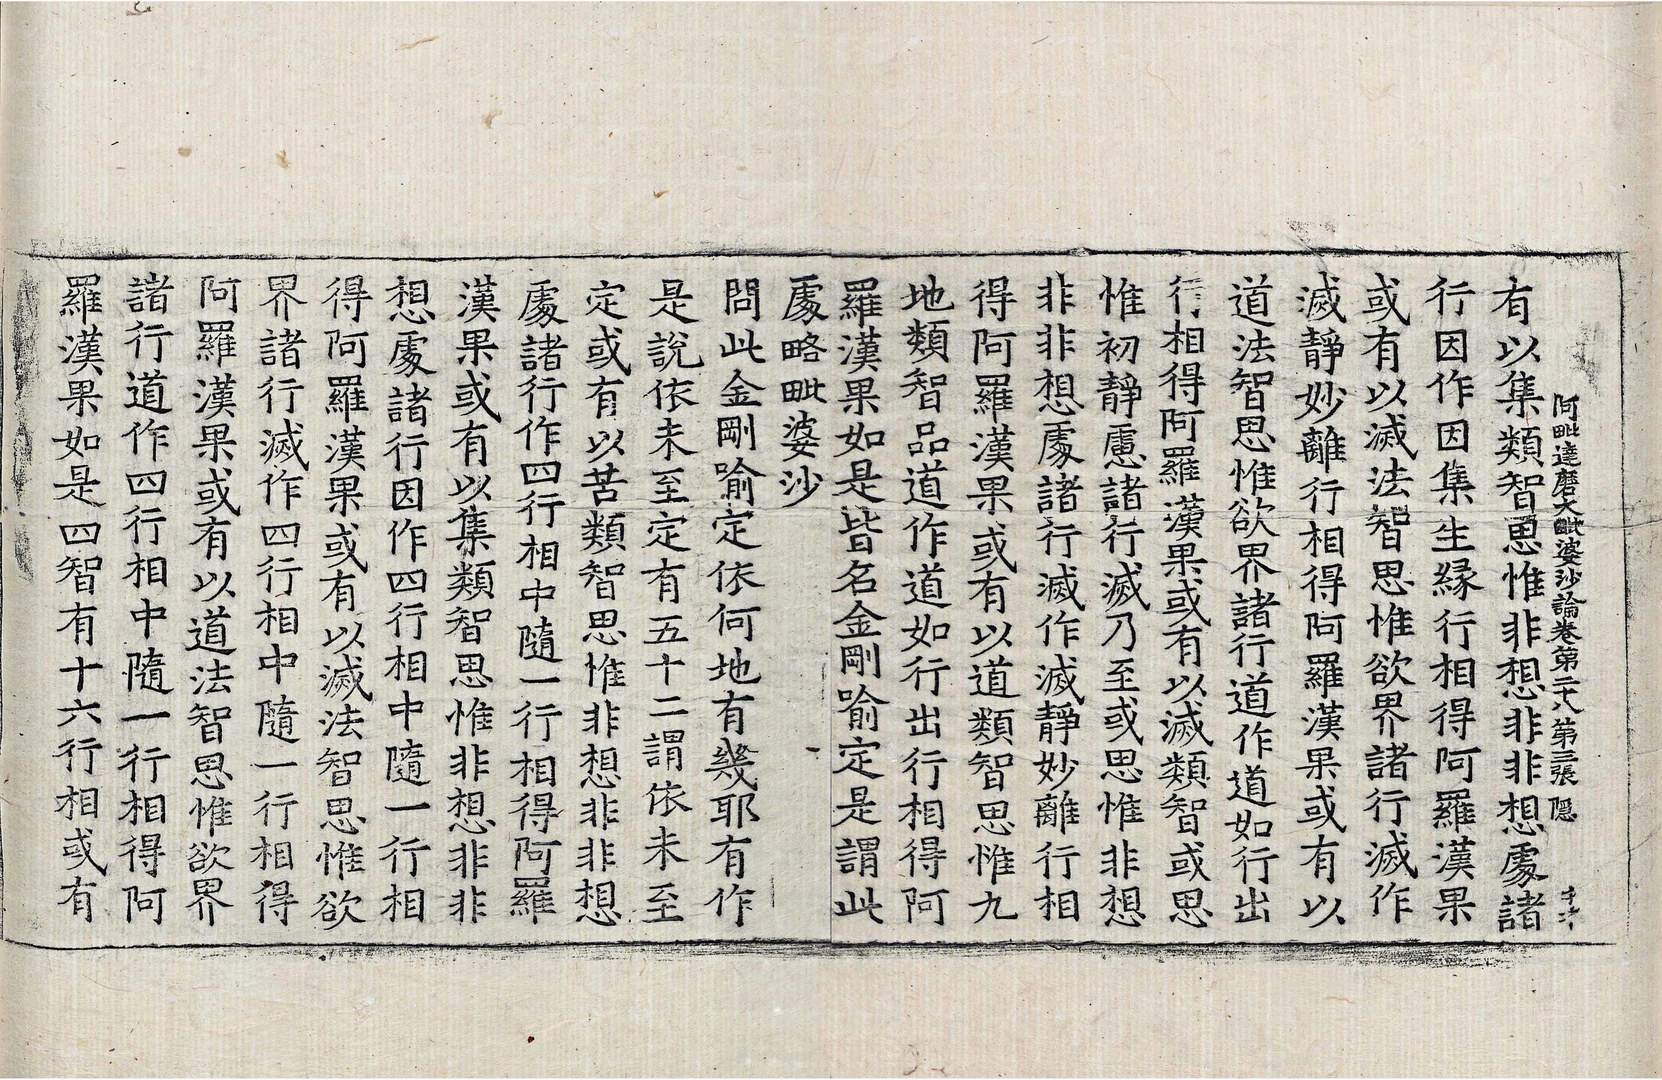 阿毗達磨大毗婆沙論卷第二十八 第三張 隱
有以集類智思惟非想非非想處諸
行因作因集生緣行相得阿羅漢果
或有以滅法智思惟欲界諸行滅作
滅靜妙離行相得阿羅漢果或有以
道法智思惟欲界諸行道作道如行出
行相得阿羅漢果或有以滅類智或思
惟初靜慮諸行滅乃至或思惟非想
非非想處諸行滅作滅靜妙離行相
得阿羅漢果或有以道類智思惟九
地類智品道作道如行出行相得阿
羅漢果如是皆名金剛喻定是謂此
處略毗婆沙
問此金剛喻定依何地有幾耶有作
是說依未至定有五十二謂依未至
定或有以苦類智思惟非想非非想
處諸行作四行相中隨一行相得阿羅
漢果或有以集類智思惟非想非非
想處諸行因作四行相中隨一行相
得阿羅漢果或有以滅法智思惟欲
界諸行滅作四行相中隨一行相得
阿羅漢果或有以道法智思惟欲界
諸行道作四行相中隨一行相得阿
羅漢果如是四智有十六行相或有